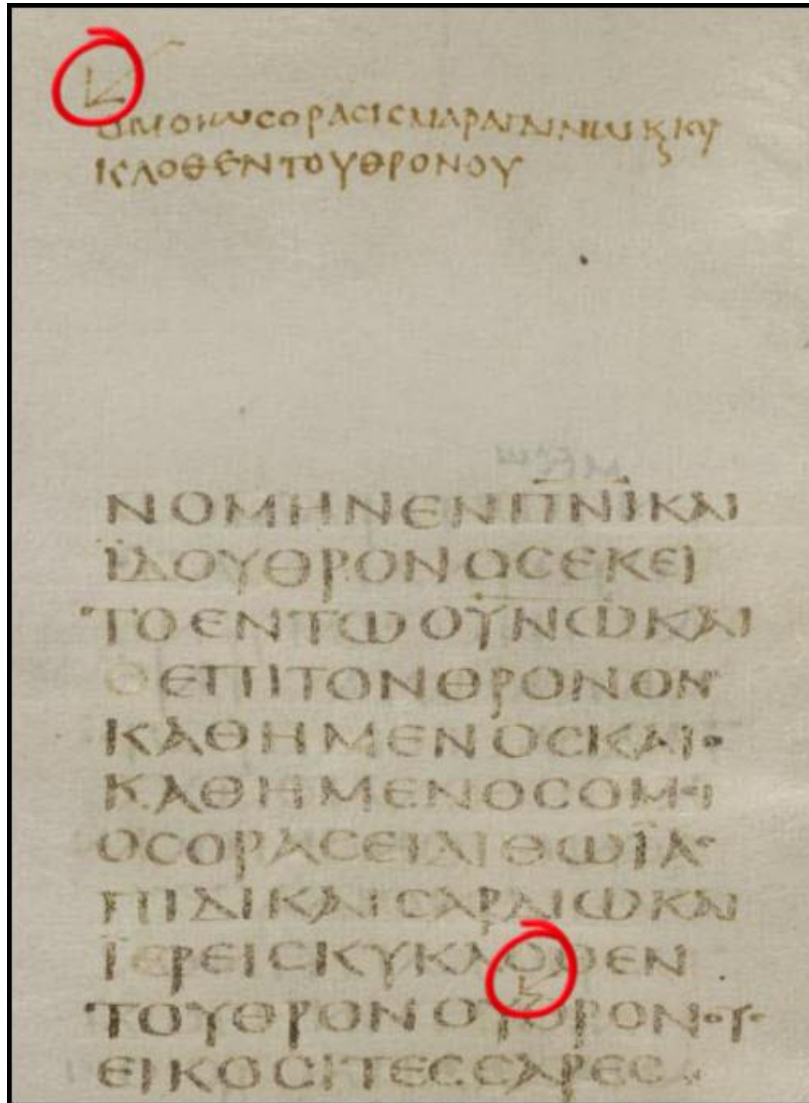 ΟΜΟΙΩϹΟΡΑϹΙϹΜΑΡΑΓΔΙΝΩ ϗ ΚΥ
ΚΛΟΘΕΝΤΟΥΘΡΟΝΟΥ
ΝΟΜΗΝΕΝΠ̅Ν̅Ι̅ΚΑΙ
ΪΔΟΥΘΡΟΝΟϹΕΚΕΙ
ΤΟΕΝΤΩΟΥ̅Ν̅Ω̅ΚΑΙ
ΟΕΠΙΤΟΝΘΡΟΝΟΝ
ΚΑΘΗΜΕΝΟϹΚΑΙΟ
ΚΑΘΗΜΕΝΟϹΟΜΟΙ
ΟϹΟΡΑϹΕΙΛΙΘΩΪΑϹ
ΠΙΔΙΚΑΙϹΑΡΔΙΩΚΑΙ
ΪΕΡΕΙϹΚΥΚΛΟΘΕΝ
ΤΟΥΘΡΟΝΟΥΘΡΟΝΟΥ
ΕΙΚΟϹΙΤΕϹϹΑΡΕϹ